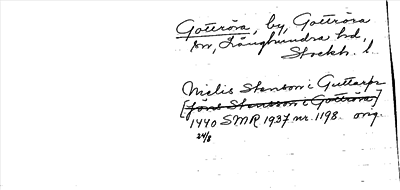 Gottröra, by, Gottröra
sn, Långhundra hd,
Stockh. l.
Nielis Stensson i Guttarp
[Jöns Stensson i Gottröra]
1440 SMR 1937 nr. 1198. orig.
24/8